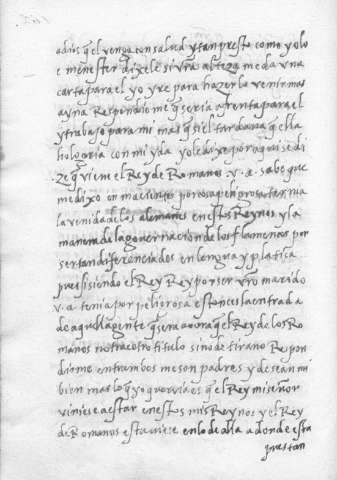 a dios q̃ el venga con salud y tan presto como yo lo
e menester dixele si vr̃a alteza me da una
carta para el yo yre para hazerle venir mas
ayna Respondiome q̃ seria afrenta para el
y trabajo para mi mas q̃ si el tardava q̃ ella
holgaria con mi yda yo le dixe por aqui se di
ze q̃ viene el Rey de Romanos . v . a . sabe que
me dixo en macient por cosa peligrosa ternia
la venida de los alemanes en estos Reynos y la
manera de la governacion de los flamencos por
ser tan diferenciados en lengua y platica
pues siendo el Rey Rey por ser vr̃o marido
v . a . tenia por peligrosa estonces la entrada
de aquella gente q̃ sera aora q̃ el Rey de los Ro
manos no trae otro titulo sino de tirano Respon
diome entrambos me son padres y desean mi
bien mas lo q̃ yo querria es q̃ el Rey mi señor
viniese a estar en estos mis Reynos y el Rey
de Romanos estuviese en lo de alla a donde esta